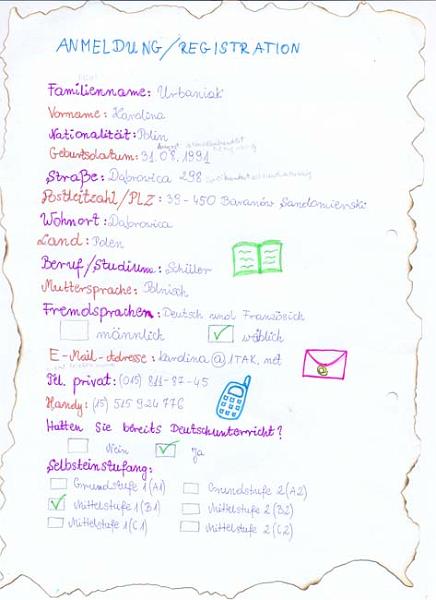 ANMELDUNG/REGISTRATION
Familienname: Urbaniak
Vorname: Karolina
Nationalität: Polin
Geburtsdatum: 31.08.1991
Straße: Dąbrowica 298
Postleitzahl/PLZ: 39-450 Baranów Sandomierski
Wohnort: Dąbrowica
Land: Polen
Beruf/Studium: Schüler
Muttersprache: Polnisch
Fremdsprachen: Deutsch und Französich
männlich weiblich
E-Mail-Adresse: karolina@1TAK.net
Tel. privat: (015) 811-87-45
Handy: (15) 515 924 776
Hatten Sie bereits Deutschunterricht?
Nein Ja
Selbsteinstufung:
Grundstufe 1(A1) Grundstufe 2(A2)
Mittelstufe 1(B1) Mittelstufe 2(B2)
Mittelstufe 1(C1) Mittelstufe 2(C2)